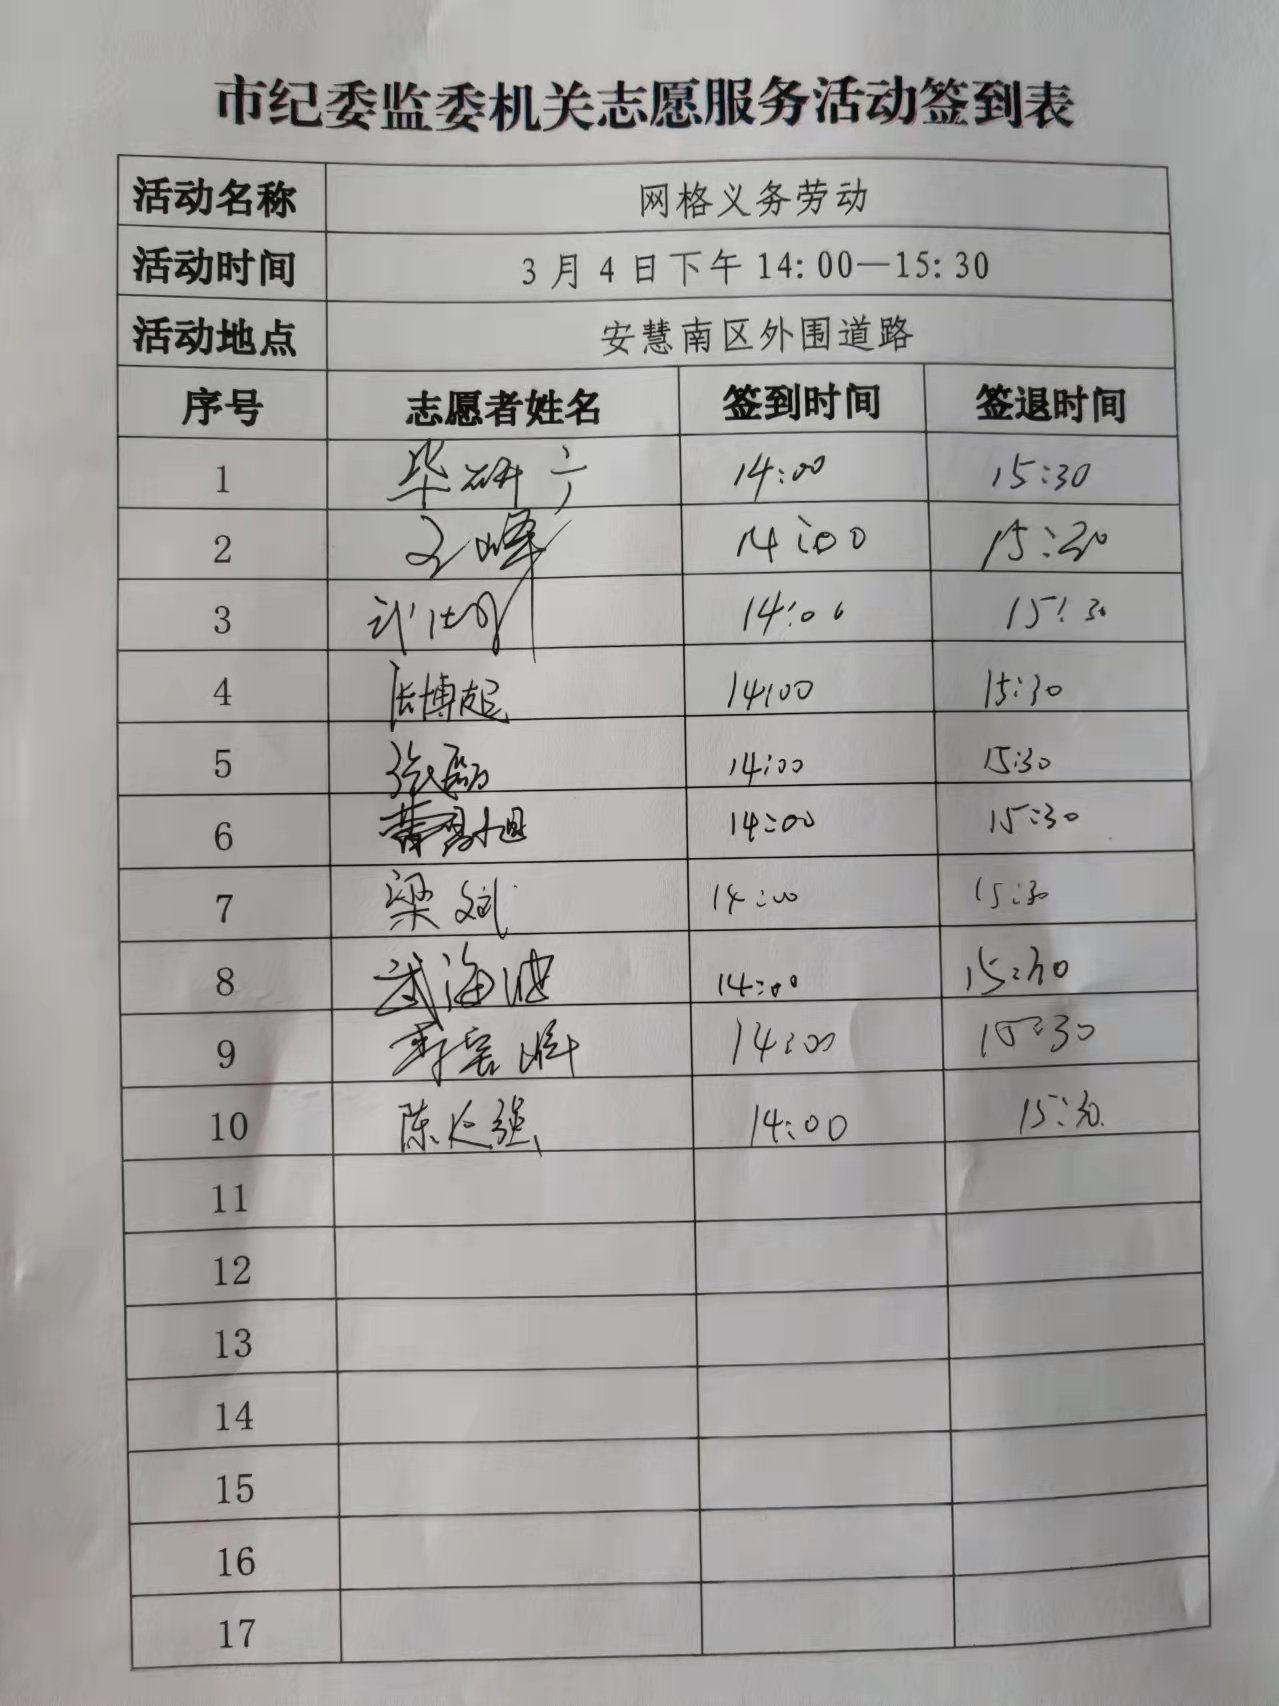 市纪委监委机关志愿服务活动签到表
活动名称 网格义务劳动
活动时间 3月4日下午14:00—15:30
活动地点 安慧南区外围道路
序号 志愿者姓名 签到时间 签退时间
1 14:00 15:30
2 14:00 15:30
3 14:00 15:30
4 14:00 15:30
5 张磊 14:00 15:30
6 14:00 15:30
7 梁斌 14:00 15:30
8 武海波 14:00 15:30
9 14:00 15:30
10 陈 强 14:00 15:30
11
12
13
14
15
16
17